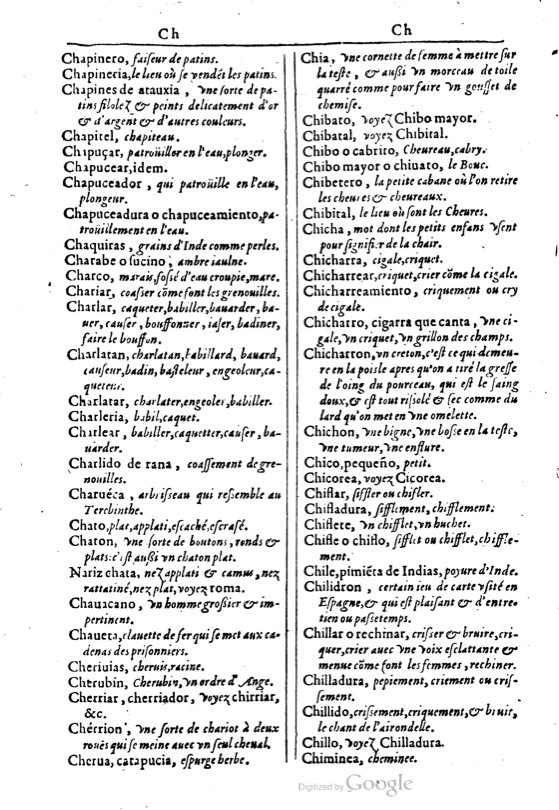 Ch
Chapinero, faiseur de patins.
Chapineria, le lieu où se vendẽt les patins.
Chapines de atauxia, vne sorte de pa-
tins filolez & peints delicatement d'or
& d'argent & d'autres couleurs.
Chapitel, chapiteau.
Chipuçar, patroüiller en l'eau, plonger.
Chapucear, idem.
Chapuceador, qui patroüille en l'eau,
plongeur.
Chapuceadura o chapuceamiento, pa-
troüillement en l'eau.
Chaquiras, grains d'Inde comme perles.
Charabe o sucino, ambre iaulne.
Charco, marais, fossé d'eau croupie, mare.
Chariar, coasser cõme font les grenouilles.
Charlar, caqueter, babiller, bauarder, ba-
uer, causer, bouffonner, iaser, badiner,
faire le bouffon.
Charlatan, charlatan, babillard, bauard,
causeur, badin, basteleur, engeoleur, ca-
queteur.
Charlatar, charlater, engeoler, babiller.
Charleria, babil, caquet.
Charlear, babiller, caquetter, causer, ba-
uarder.
Charlido de rana, coassement de gre-
nouilles.
Charuéca, arbrisseau qui ressemble au
Terebinthe.
Chato, plat, applati, escaché, escrasé.
Chaton, vne sorte de boutons, ronds &
plats: c'est aussi vn chaton plat.
Nariz chata, nez applati & camus, nez
rattatiné, nez plat, voyez roma.
Chauacano, vn homme grossier & im-
pertinent.
Chaueta, clauette de fer qui se met aux ca-
denas des prisonniers.
Cheriuias, cheruis, racine.
Cherubin, Cherubin, vn ordre d'Ange.
Cherriar, cherriador, voyez chirriar,
&c.
Chérrion, vne sorte de chariot à deux
rouës qui se meine auec vn seul cheual.
Cherua, catapucia, espurge herbe.
Ch
Chia, vne cornette de femme à mettre sur
la teste, & aussi vn morceau de toile
quarré comme pour faire vn gousset de
chemise.
Chibato, voyez Chibo mayor.
Chibatal, voyez Chibital.
Chibo o cabrito, Cheureau, cabry.
Chibo mayor o chiuato, le Bouc.
Chibetero, la petite cabane où l'on retire
les cheures & cheureaux.
Chibital, le lieu où sont les Cheures.
Chicha, mot dont les petits enfans vsent
pour signifier de la chair.
Chicharra, cigale, criquet.
Chicharrear, criquet, crier cõme la cigale.
Chicharreamiento, criquement ou cry
de cigale.
Chicharro, cigarra que canta, vne ci-
gale, vn criquet, vn grillon des champs.
Chicharron, vn creton, c'est ce qui demeu-
re en la poisle apres qu'on a tiré la gresse
de l'oing du pourceau, qui est le saing
doux, & est tout rissolé & sec comme du
lard qu'on met en vne omelette.
Chichon, vne bigne, vne bosse en la teste,
vne tumeur, vne enflure.
Chico, pequeño, petit.
Chicorea, voyez Cicorea.
Chiflar, siffler ou chifler.
Chifladura, sifflement, chifflement.
Chiflete, vn chifflet, vn huchet.
Chifle o chiflo, sifflet ou chifflet, chiffle-
ment.
Chile, pimiẽta de Indias, poyure d'Inde.
Chilidron, certain ieu de carte vsité en
Espagne, & qui est plaisant & d'entre-
tien ou passetemps.
Chillar o rechinar, crisser & bruire, cri-
quer, crier auec vne voix esclattante &
menue cõme font les femmes, rechiner.
Chilladura, pepiement, criement ou cris-
sement.
Chillido, crissement, criquement, & bruit,
le chant de l'airondelle.
Chillo, voyez Chilladura.
Chiminea, cheminee.
Digitized by Google